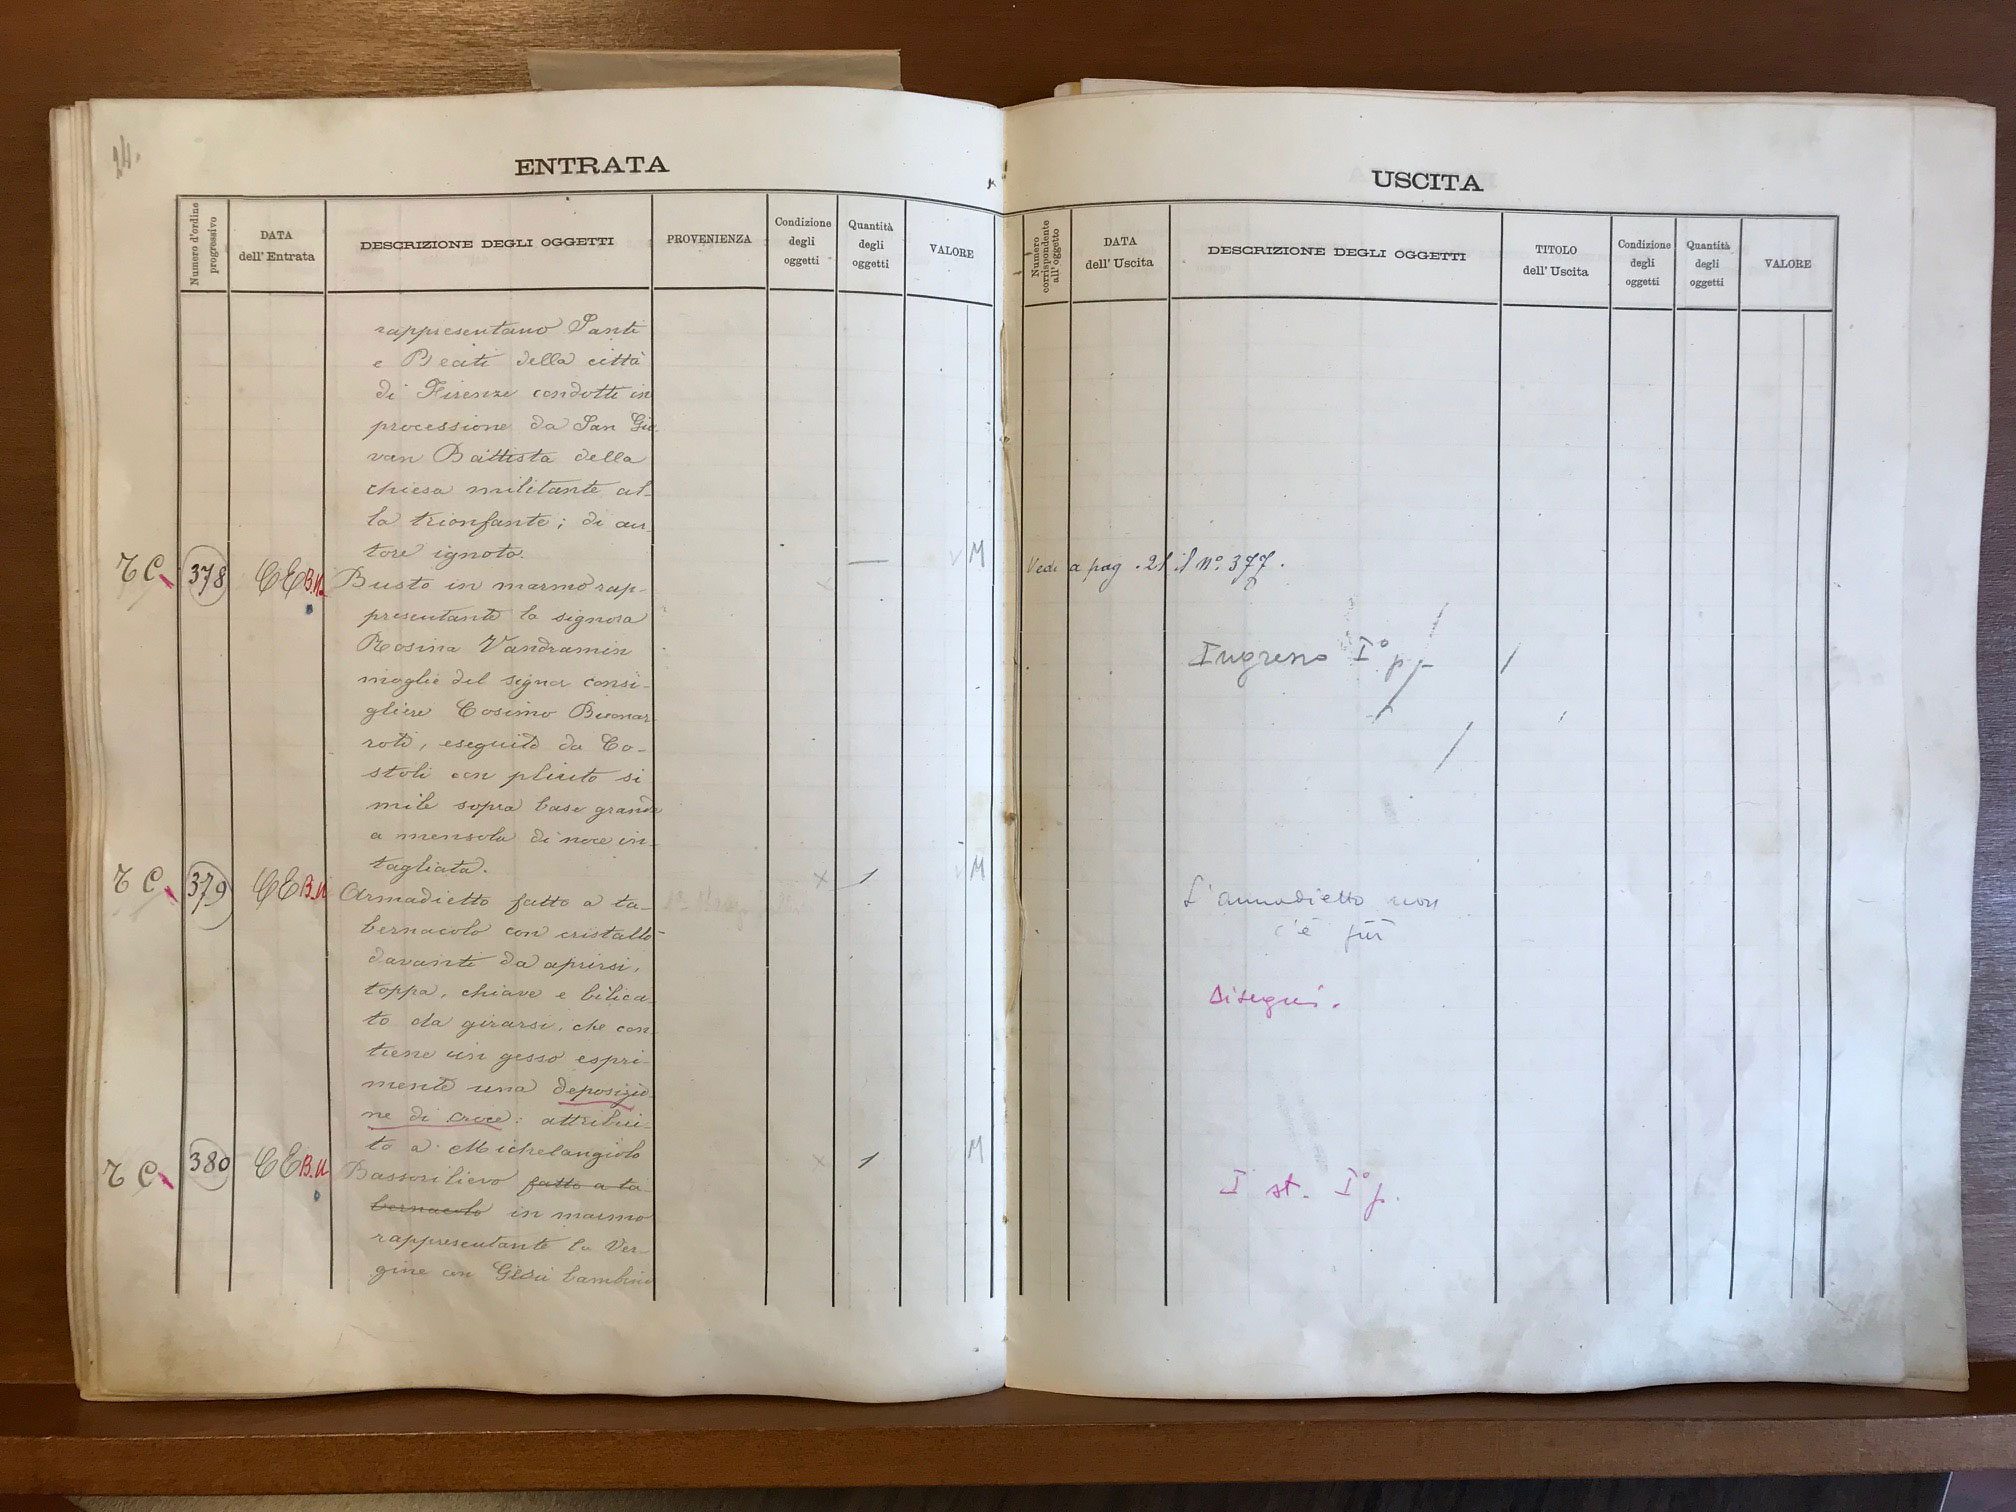 24.
ENTRATA
Numero d'ordine progressivo
DATA dell'Entrata
DESCRIZIONE DEGLI OGGETTI
PROVENIENZA
Condizione degli oggetti
Quantità degli oggetti
VALORE
rappresentano Santi
e Beati della città
di Firenze condotti in
processione da San Gio
van Battista della
chiesa militante al-
la trionfante; di au-
tore ignoto.
M
T C 378 CE B.U. Busto in marmo rap-
presentante la signora
Rosina Vandramin
moglie del signor consi-
gliere Cosimo Buonar
roti, eseguito da Co-
stoli con plinto si
mile sopra base grande
a mensola di noce in-
tagliata.
x 1 M
T C 379 CE B.U Armadietto fatto a ta-
bernacolo con cristallo
davante da aprirsi,
toppa, chiave e bilica-
to da girarsi, che con-
tiene un gesso espri-
mente una deposizio
ne di croce: attribui-
to a Michelangiolo
x 1 M
T C 380 CE B.U Bassorilievo fatto a ta
bernacolo in marmo
rappresentante la Ver-
gine con Gesù bambino
USCITA
Numero corrispondente all'oggetto
DATA dell'Uscita
DESCRIZIONE DEGLI OGGETTI
TITOLO dell'Uscita
Condizione degli oggetti
Quantità degli oggetti
VALORE
Vedi a pag. 21 il No. 377.
Ingresso I° p
L'armadietto non
c'è più
Disegni.
I st. I° p.